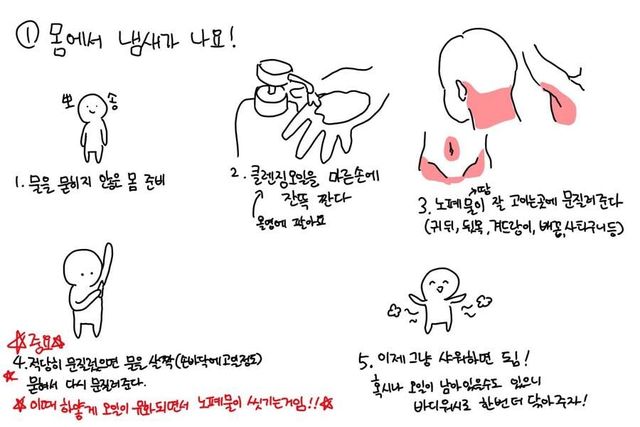 ① 몸에서 냄새가 나요!
뽀송
1. 물을 묻히지 않은 몸 준비
2. 클렌징오일을 마른손에
잔뜩 짠다
올영에 팔아요
→땀
3. 노폐물이 잘 고이는곳에 문질러준다
(귀뒤, 뒷목, 겨드랑이, 배꼽, 사타구니등)
☆중요☆
4. 적당히 문질렀으면 물을 살짝(손바닥에 고일정도)
☆ 묻혀서 다시 문질러준다.
☆ 이때 하얗게 오일이 유화되면서 노폐물이 씻기는거임!! ☆
5. 이제 그냥 샤워하면 됨!
혹시나 오일이 남아있을수도 있으니
바디워시로 한번 더 닦아주자!